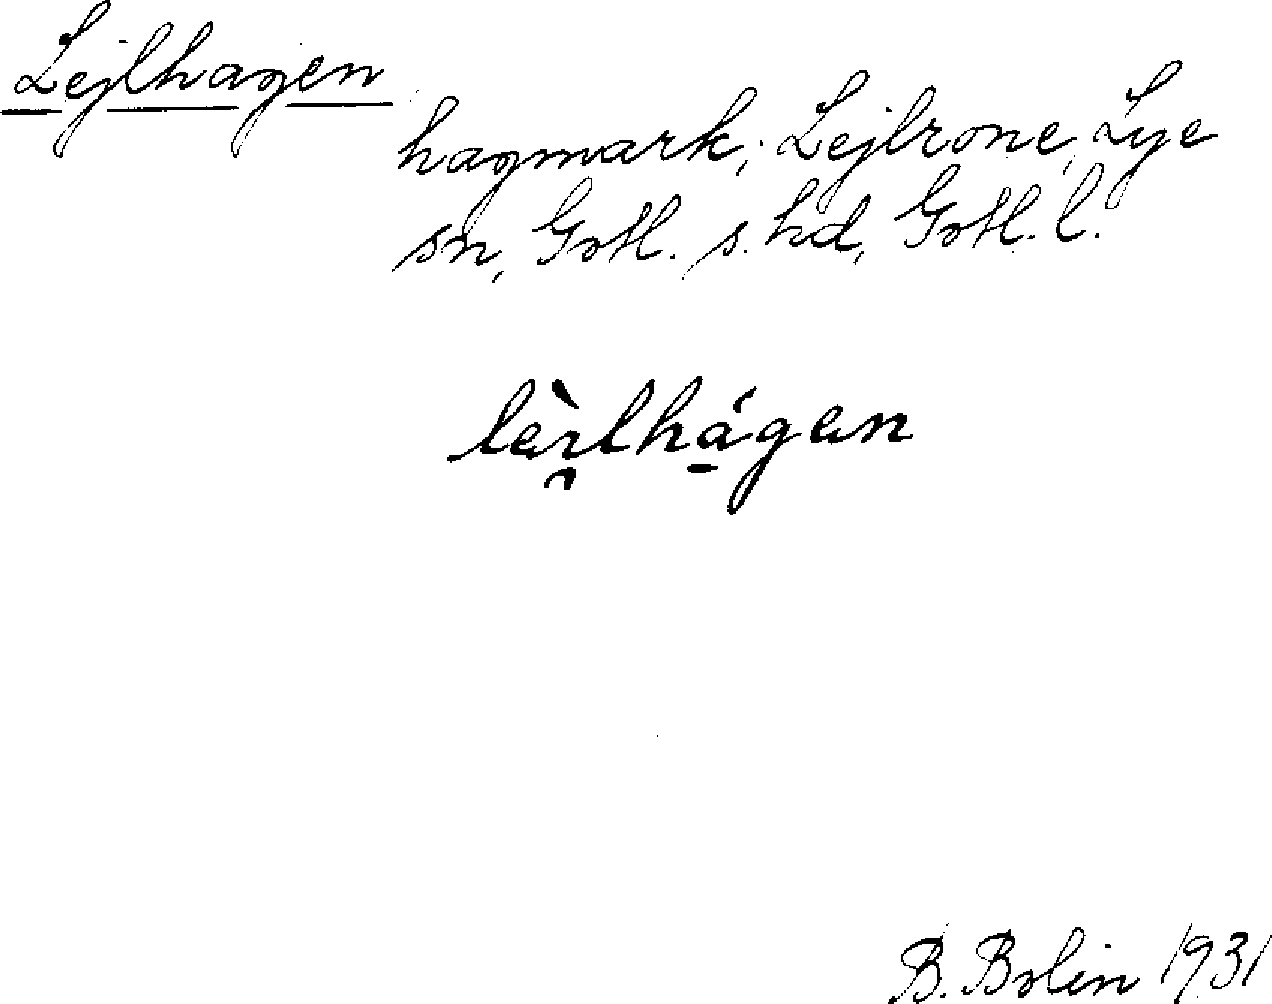 Lejlhagen
hagmark; Lejlrone, Lye
sn, Gotl. s. hd, Gotl. l.
lèı̯lhágen
B. Bolin 1931